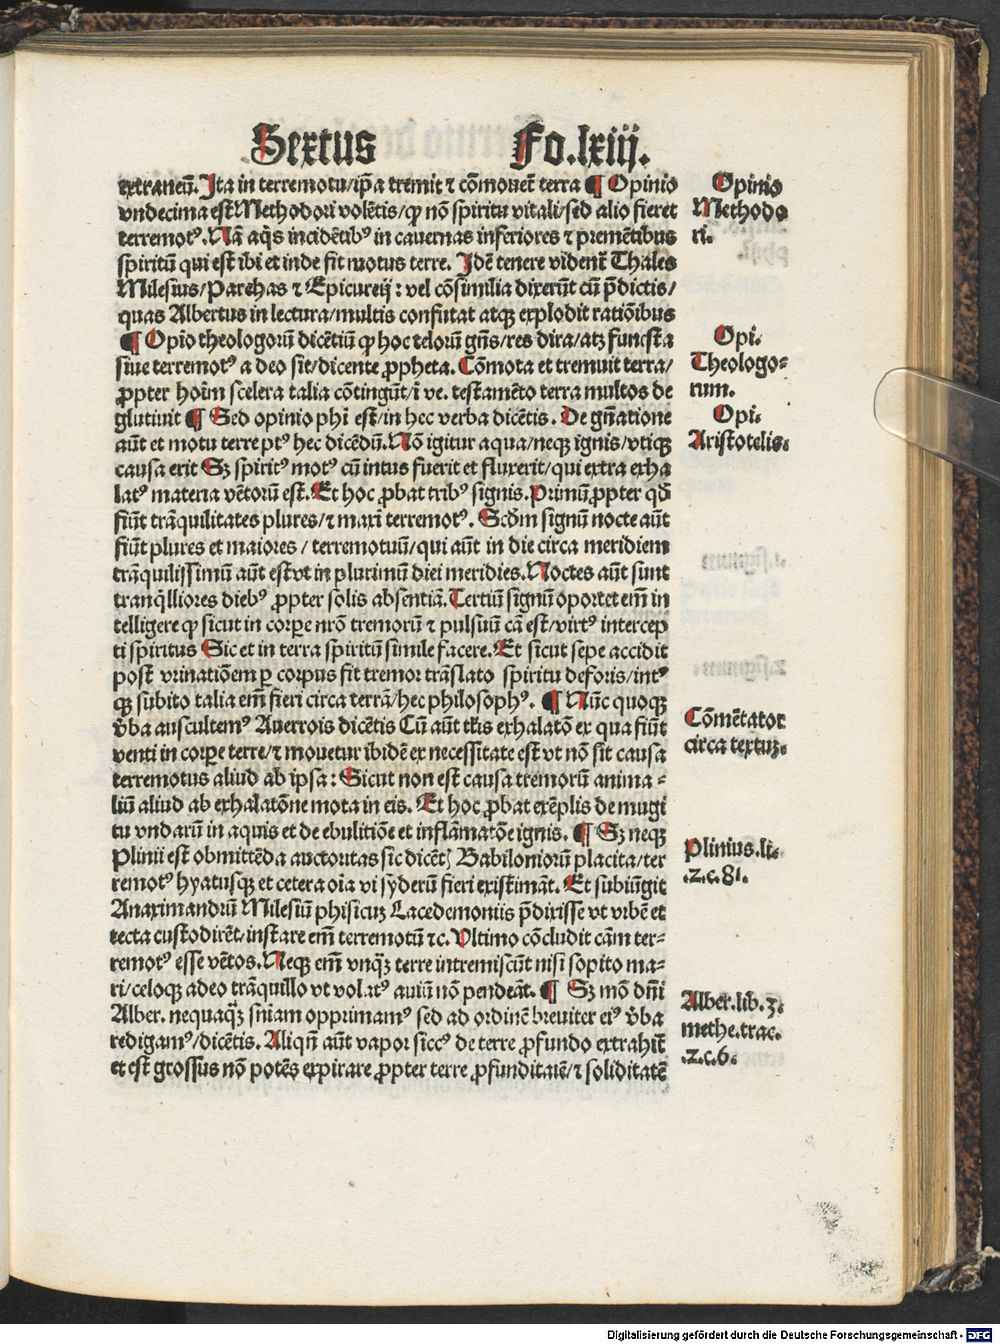 Sextus Fo.lxiij.
extraneū. Ita in terremotu/ip̄a tremit ⁊ cōmouet͛ terra ¶ Opinio
vndecima est Methodori volētis/ꝙ nō spiritu vitali/sed alio fieret
terremotꝰ. Nā aq̄s incidētibꝰ in cauernas inferiores ⁊ premētibus
spiritū qui est ibi et inde fit motus terre. Idē tenere vident͛ Thales
Milesius/Parehas ⁊ Epicureij: vel cōsimilia dixerūt cū p̄dictis/
quas Albertus in lectura/multis confutat atqꝫ explodit ratiōibus
¶ Opīo theologorū dicētiū ꝙ hoc telorū gn̄s/res dira/atꝫ funesta
siue terremotꝰ a deo sit/dicente ꝓpheta. Cōmota et tremuit terra/
ꝓpter hoīm scelera talia cōtingūt/ī ve. testamēto terra multos de
glutiuit ¶ Sed opinio phī est/in hec verba dicētis. De gn̄atione
aūt et motu terre ptꝰ hec dicēdū. Nō igitur aqua/neqꝫ ignis/vtiqꝫ
causa erit Sꝫ spiritꝰ motꝰ cū intus fuerit et fluxerit/qui extra exha
latꝰ materia vētorū est. Et hoc ꝓbat tribꝰ signis. Primū ꝓpter qđ
fiūt trāquilitates plures/⁊ maxī terremotꝰ. Scđm signū nocte aūt
fiūt plures et maiores / terremotuū/qui aūt in die circa meridiem
trāquilissimū aūt est vt in plurimū diei meridies. Noctes aūt sunt
tranq̄lliores diebꝰ ꝓpter solis absentiā. Tertiū signū oportet em̄ in
telligere ꝙ sicut in corꝑe nr̄o tremorū ⁊ pulsuū cā est/virtꝰ intercep
ti spiritus Sic et in terra spiritū simile facere. Et sicut sepe accidit
post vrinationem ꝑ corpus fit tremor trāslato spiritu deforis/intꝰ
qꝫ subito talia em̄ fieri circa terrā/hec philosophꝰ. ¶ Nūc quoqꝫ
v̄ba auscultemꝰ Auerrois dicētis Cū aūt tl̄is exhalatō ex qua fiūt
venti in corꝑe terre/⁊ mouetur ibidē ex necessitate est vt nō sit causa
terremotus aliud ab ipsa: Sicut non est causa tremorū anima-
liū aliud ab exhalatōne mota in eis. Et hoc ꝓbat exēplis de mugi
tu vndarū in aquis et de ebulitiōe et inflāmatōe ignis. ¶ Sꝫ neqꝫ
Plinii est obmittēda auctoritas sic dicēt̄ Babiloniorū placita/ter
remotꝰ hyatusqꝫ et cetera oīa vi sẏderū fieri existimāt. Et subiūgit
Anaximandrū Milesiū phisicuꝫ Lacedemoniis p̄dixisse vt vrbē et
tecta custodirēt/instare em̄ terremotū ⁊c. Vltimo cōcludit cām ter-
remotꝰ esse vētos. Neqꝫ em̄ vnqꝫ̄ terre intremiscūt nisi sopito ma-
ri/celoqꝫ adeo trāquillo vt volatꝰ auiū nō pendeāt. ¶ Sꝫ mō dn̄i
Alber. nequaqꝫ̄ sn̄iam opprimamꝰ sed ad ordinē breuiter eiꝰ v̄ba
redigamꝰ/dicētis. Aliqn̄ aūt vapor siccꝰ de terre ꝓfundo extrahit͛
et est grossus nō potēs expirare ꝓpter terre ꝓfunditatē/⁊ soliditatē
Opinio
Methodo
ri.
Opi.
Theologo-
rum.
Opi.
Aristotelis.
Cōmētator
circa textuꝫ.
Plinius.li.
.2.c.81.
Alber.lib.3.
methe.trac.
.2.c.6.
Digitalisierung gefördert durch die Deutsche Forschungsgemeinschaft - DFG